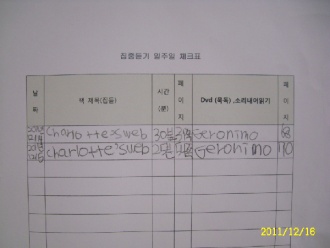 집중듣기 일주일 체크표
날짜 책 제목(집듣) 시간(분) 페이지 Dvd (목록) ,소리내어읽기 페이지
charlotte's web 30분 Geronimo
charlotte's web Geronimo
2011/12/16